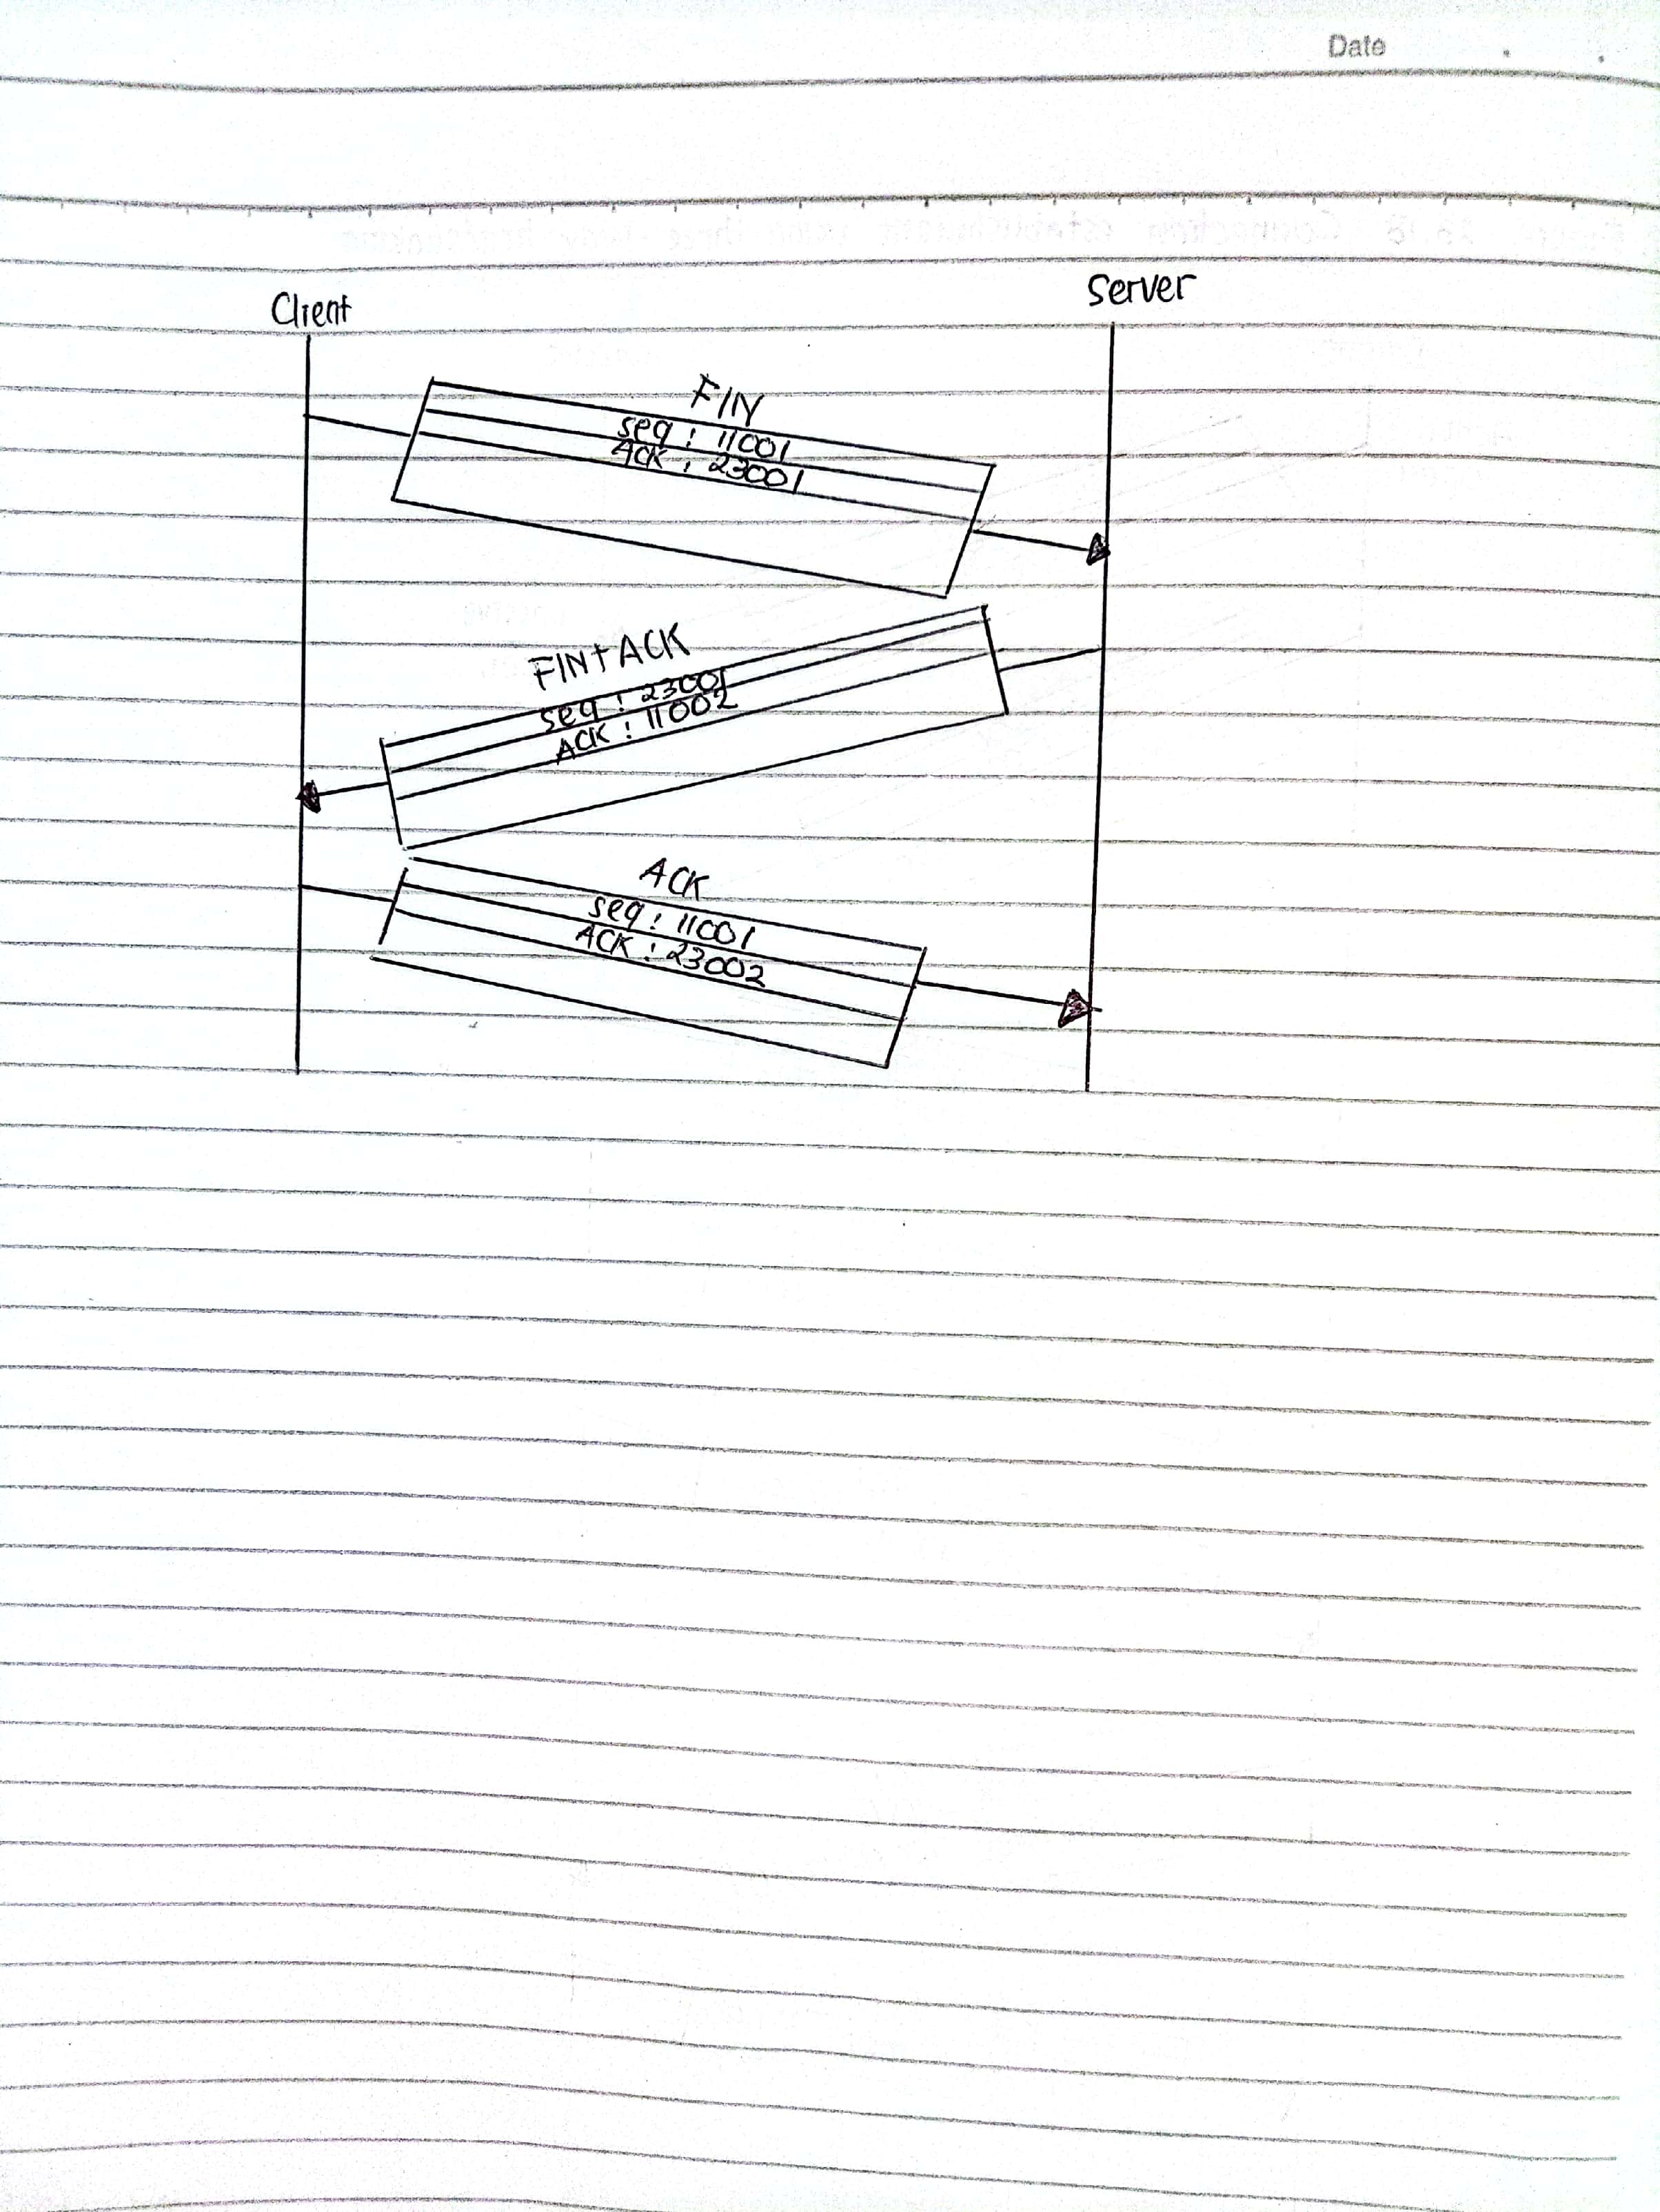 Date
Client
Server
FIN
seq : 11001
ACK : 23001
FIN+ACK
seq : 23001
ACK : 11002
ACK
seq : 11001
ACK : 23002